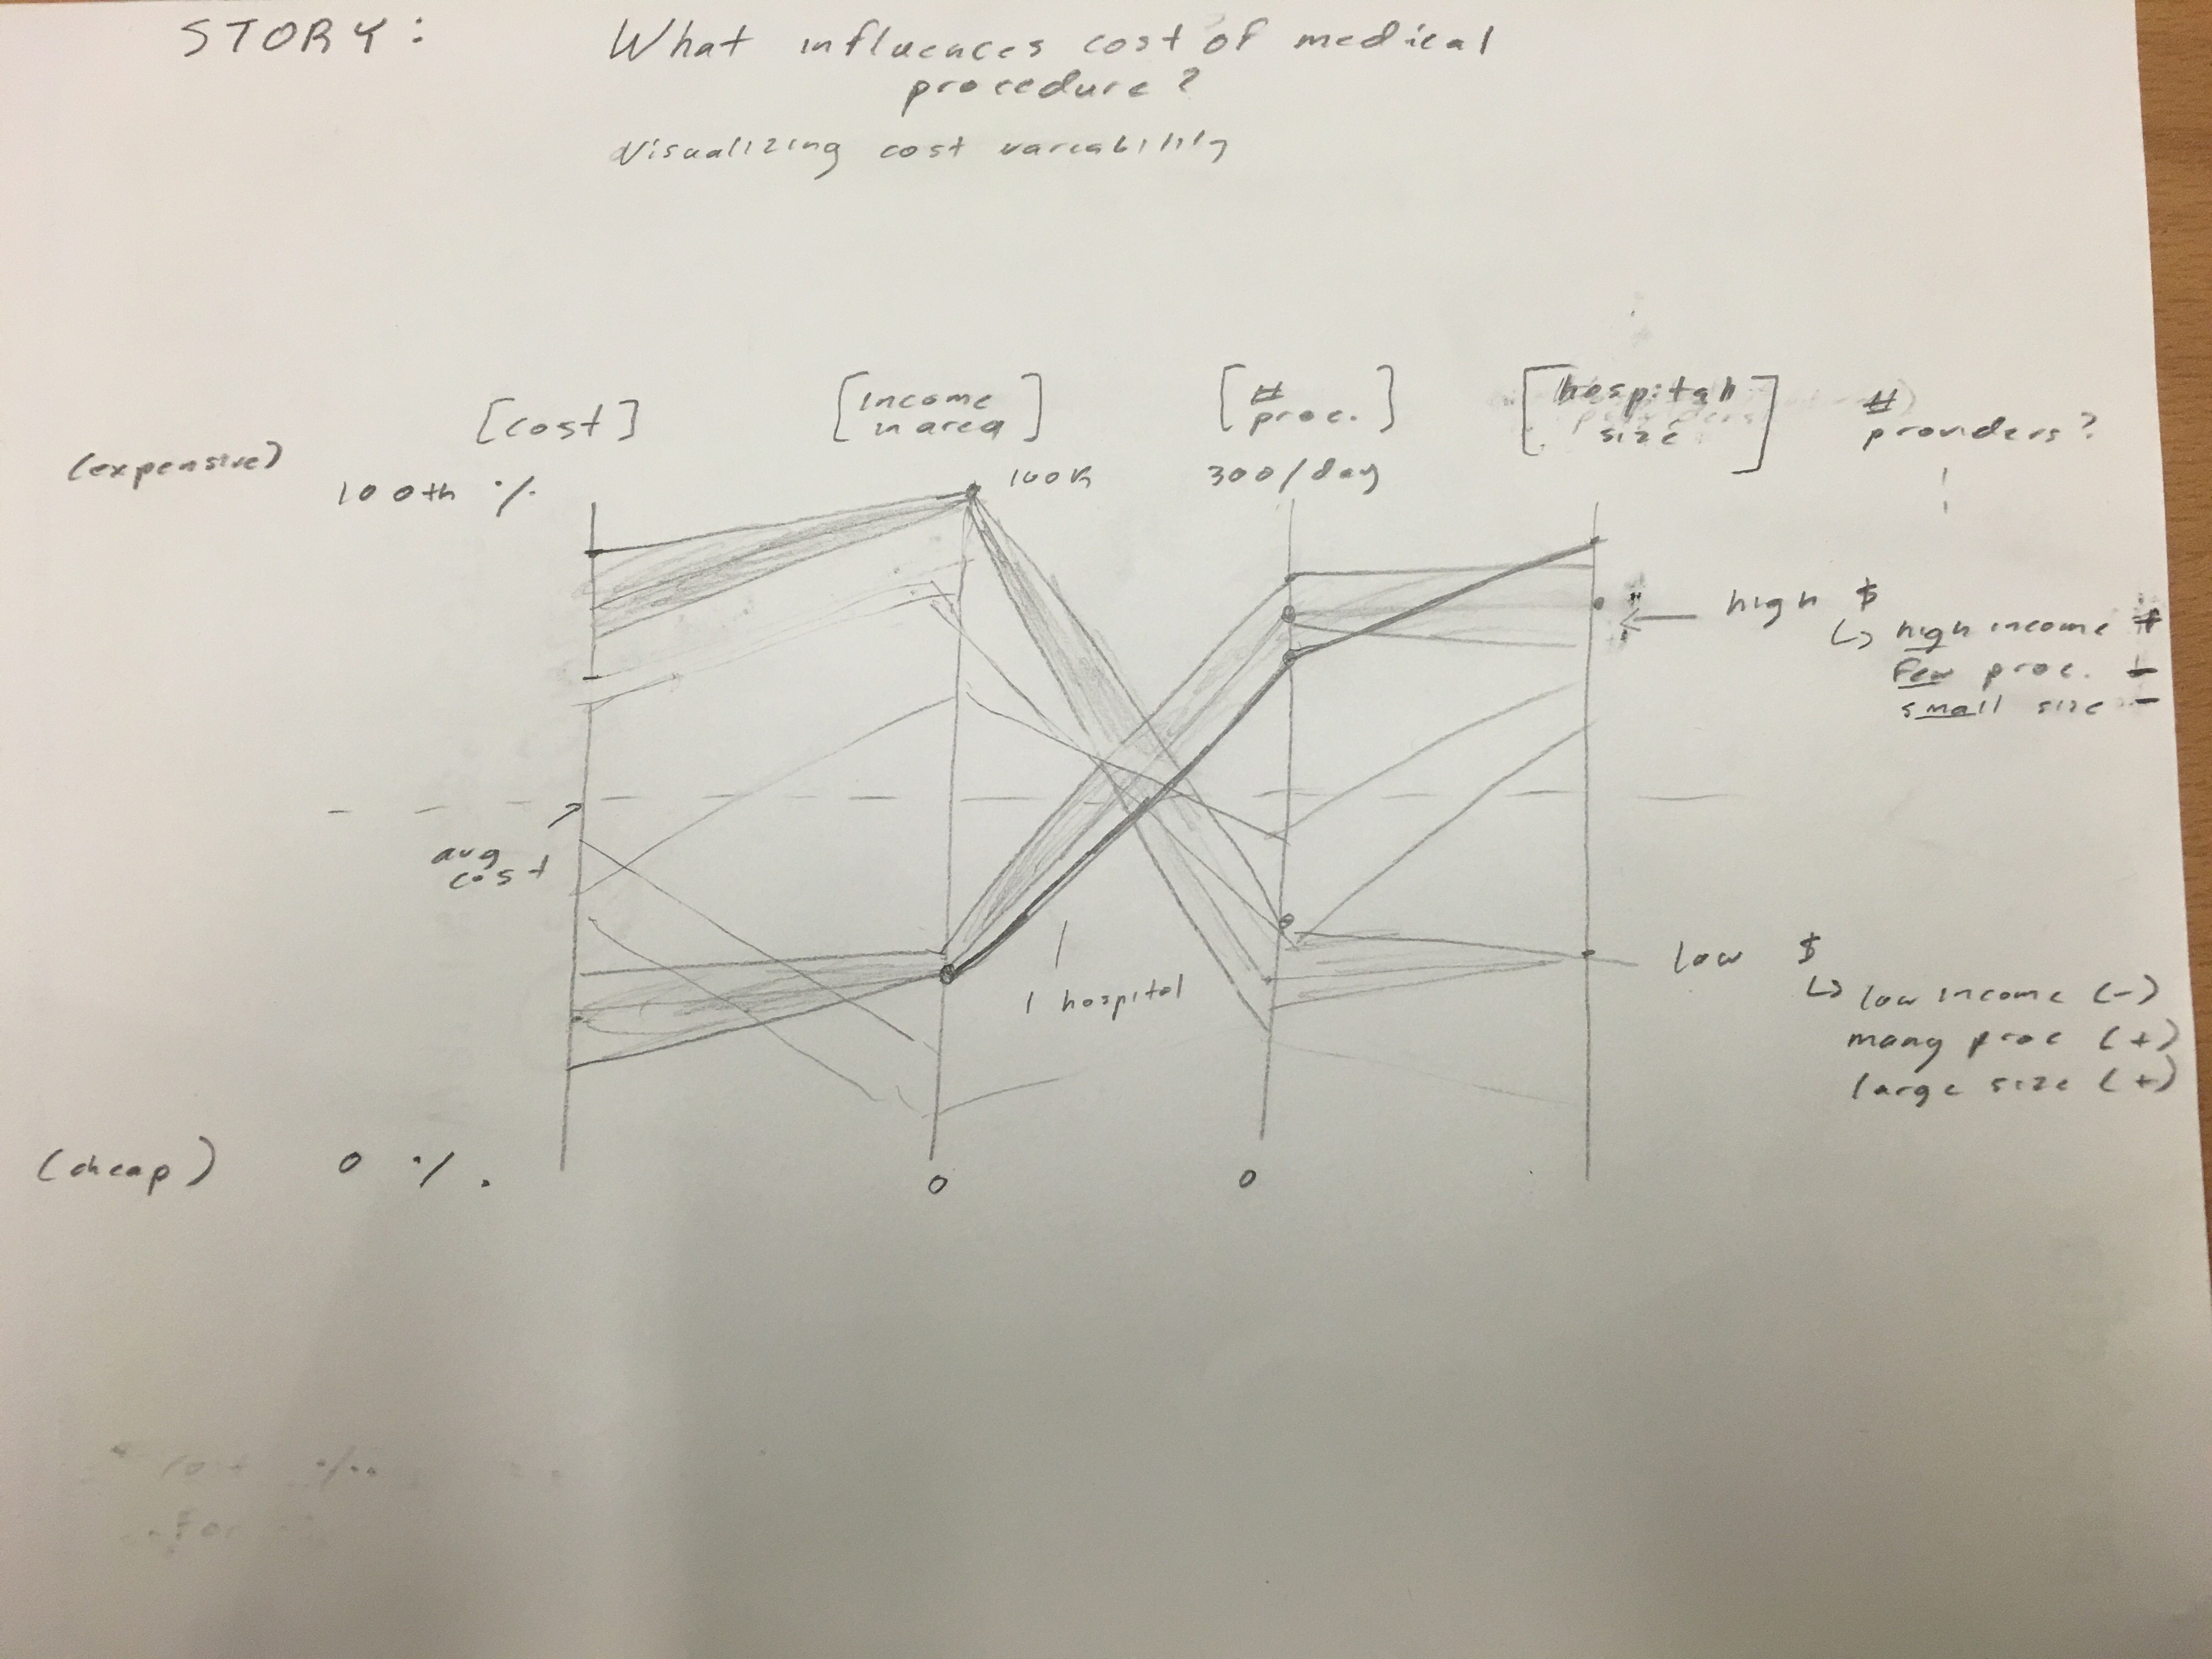 STORY: What influences cost of medical
procedure?
Visualizing cost variability
[cost]
[income
in area]
[#
proc.]
[hospital
size]
#
providers?
(expensive)
100th %
100K
300/day
avg
cost
1 hospital
high $
↳ high income +
few proc. -
small size -
low $
↳ low income (-)
many proc (+)
large size (+)
(cheap) 0 %.
0
0